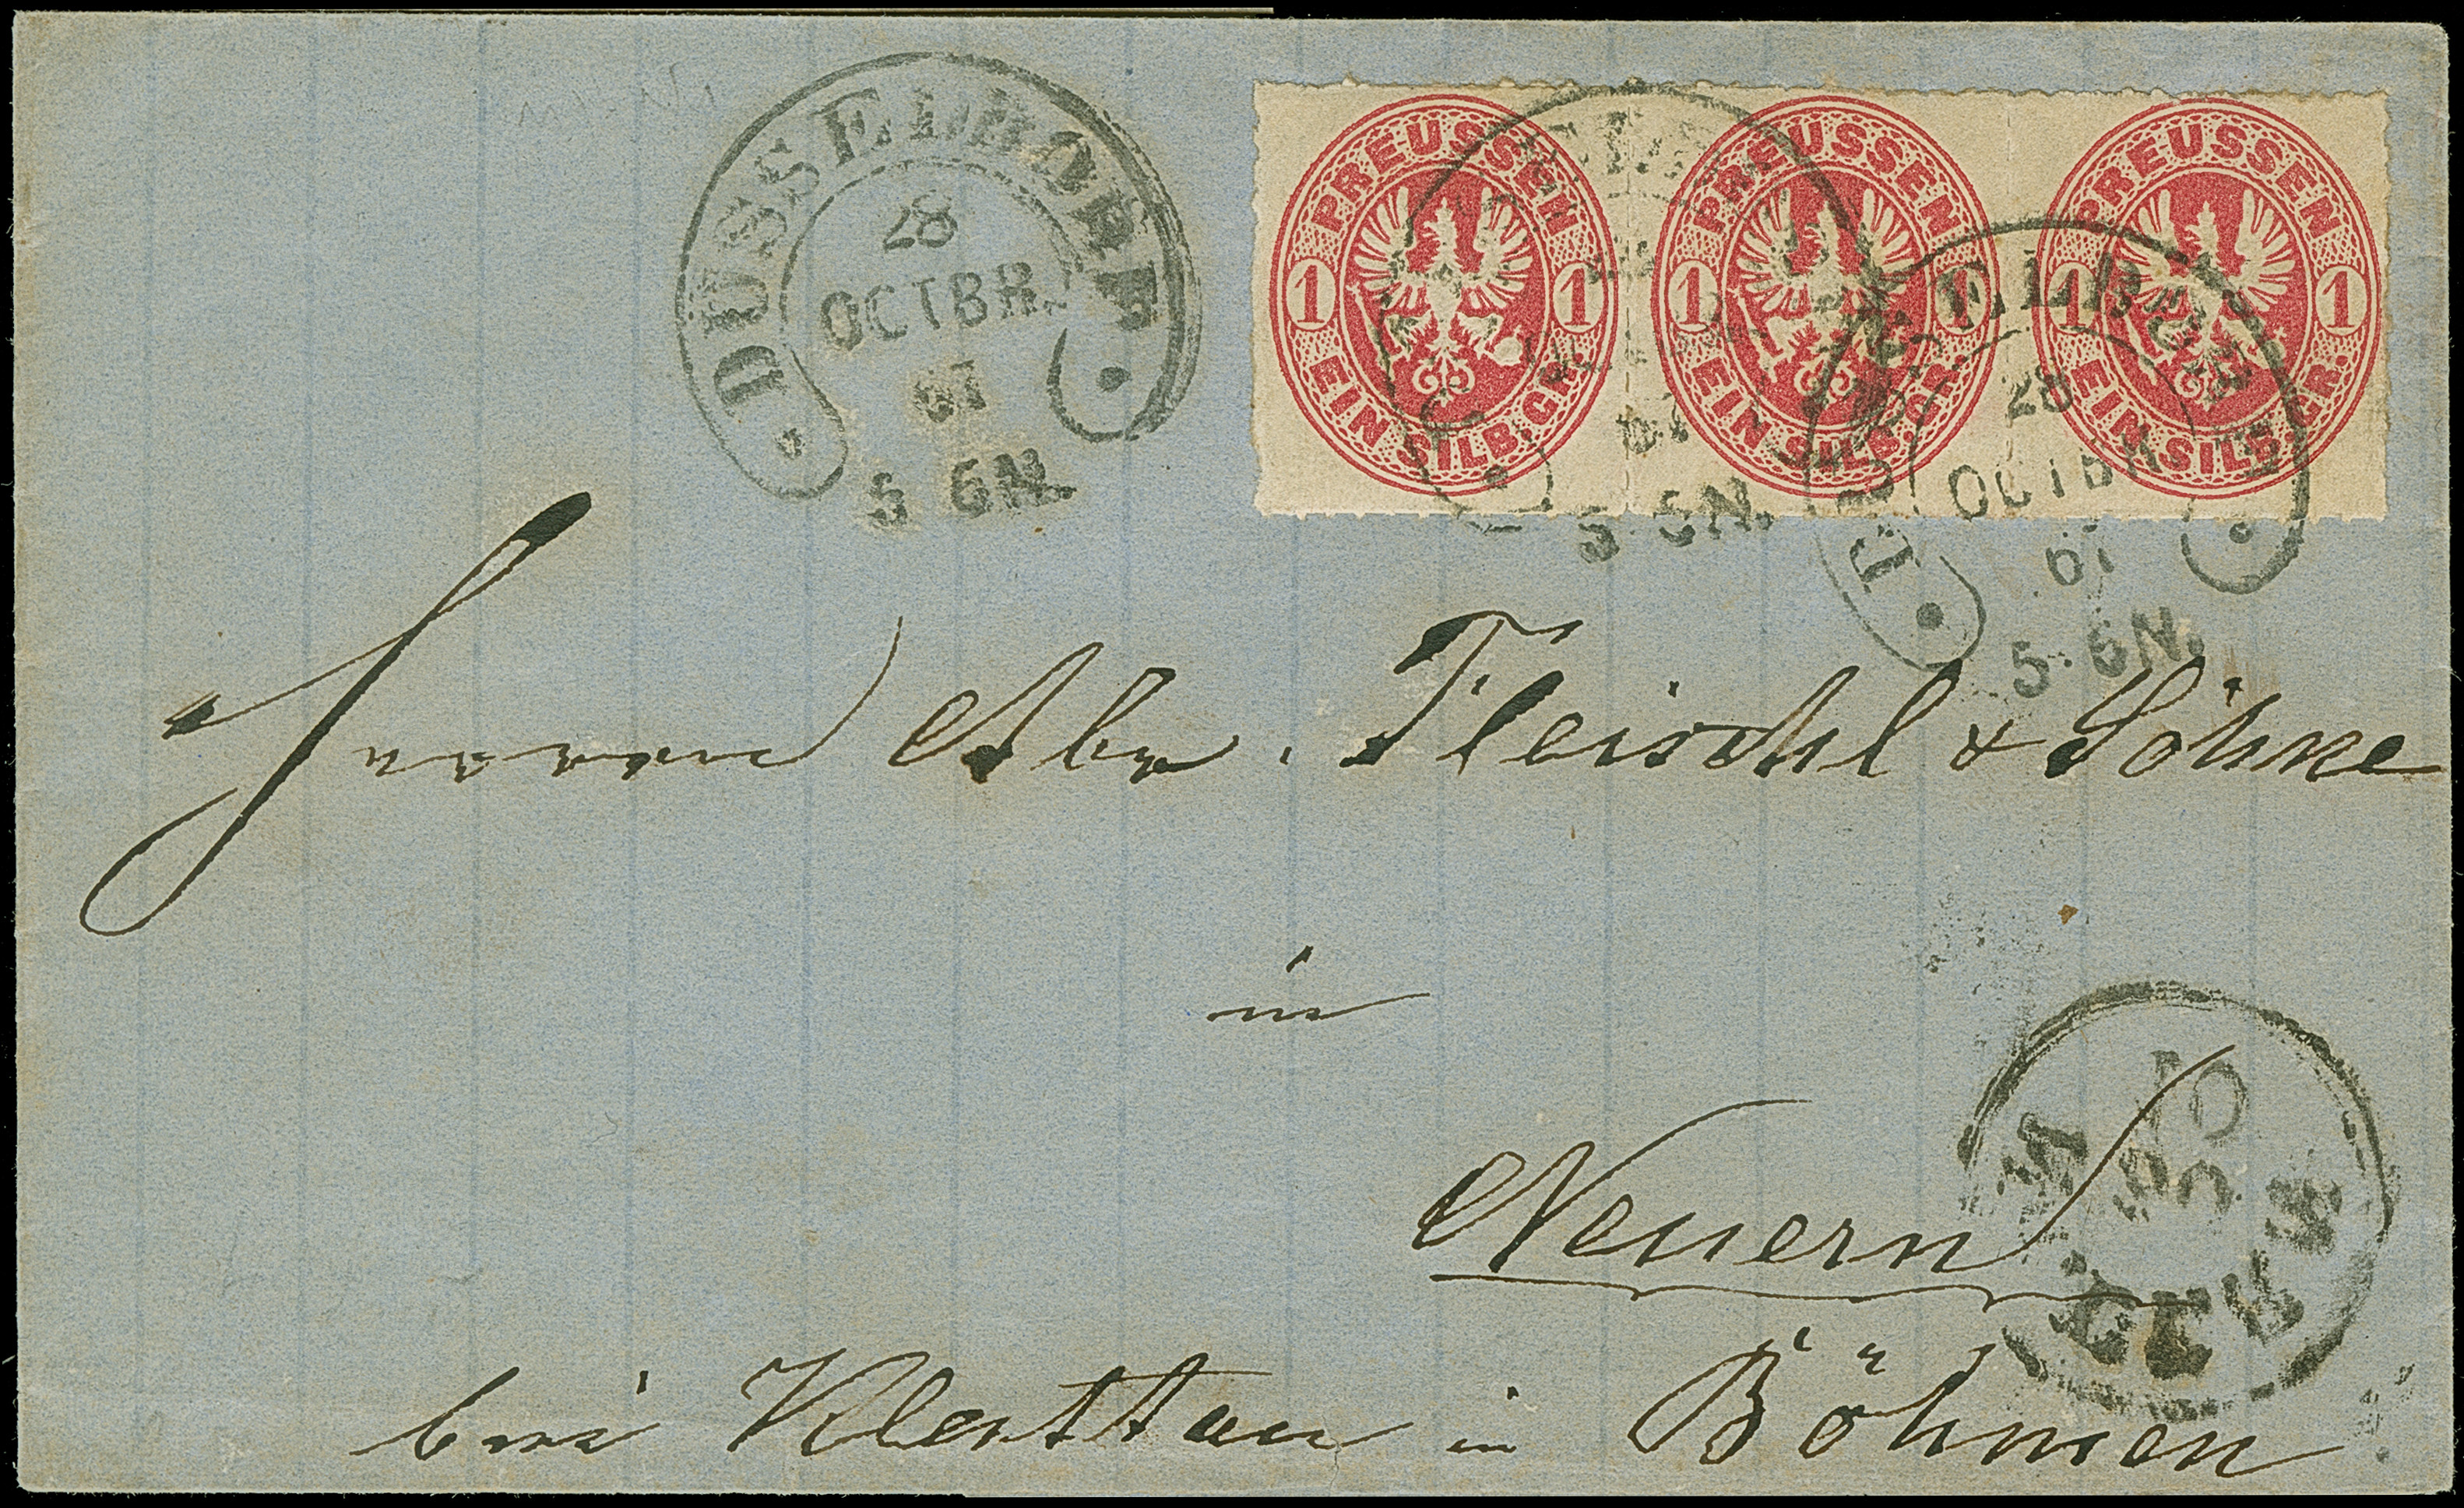 DÜSSELDORF
28
OCTBR.
67
5 6N.
PREUSSEN
1 1
EIN SILB. GR.
PREUSSEN
1 1
EIN SILB. GR.
PREUSSEN
1 1
EIN SILB. GR.
5 6N.
DÜSSELDORF
28
OCTBR
67
5 6N.
Herren Abr. Fleischl & Söhne
in
Neuern
bei Klattau in Böhmen